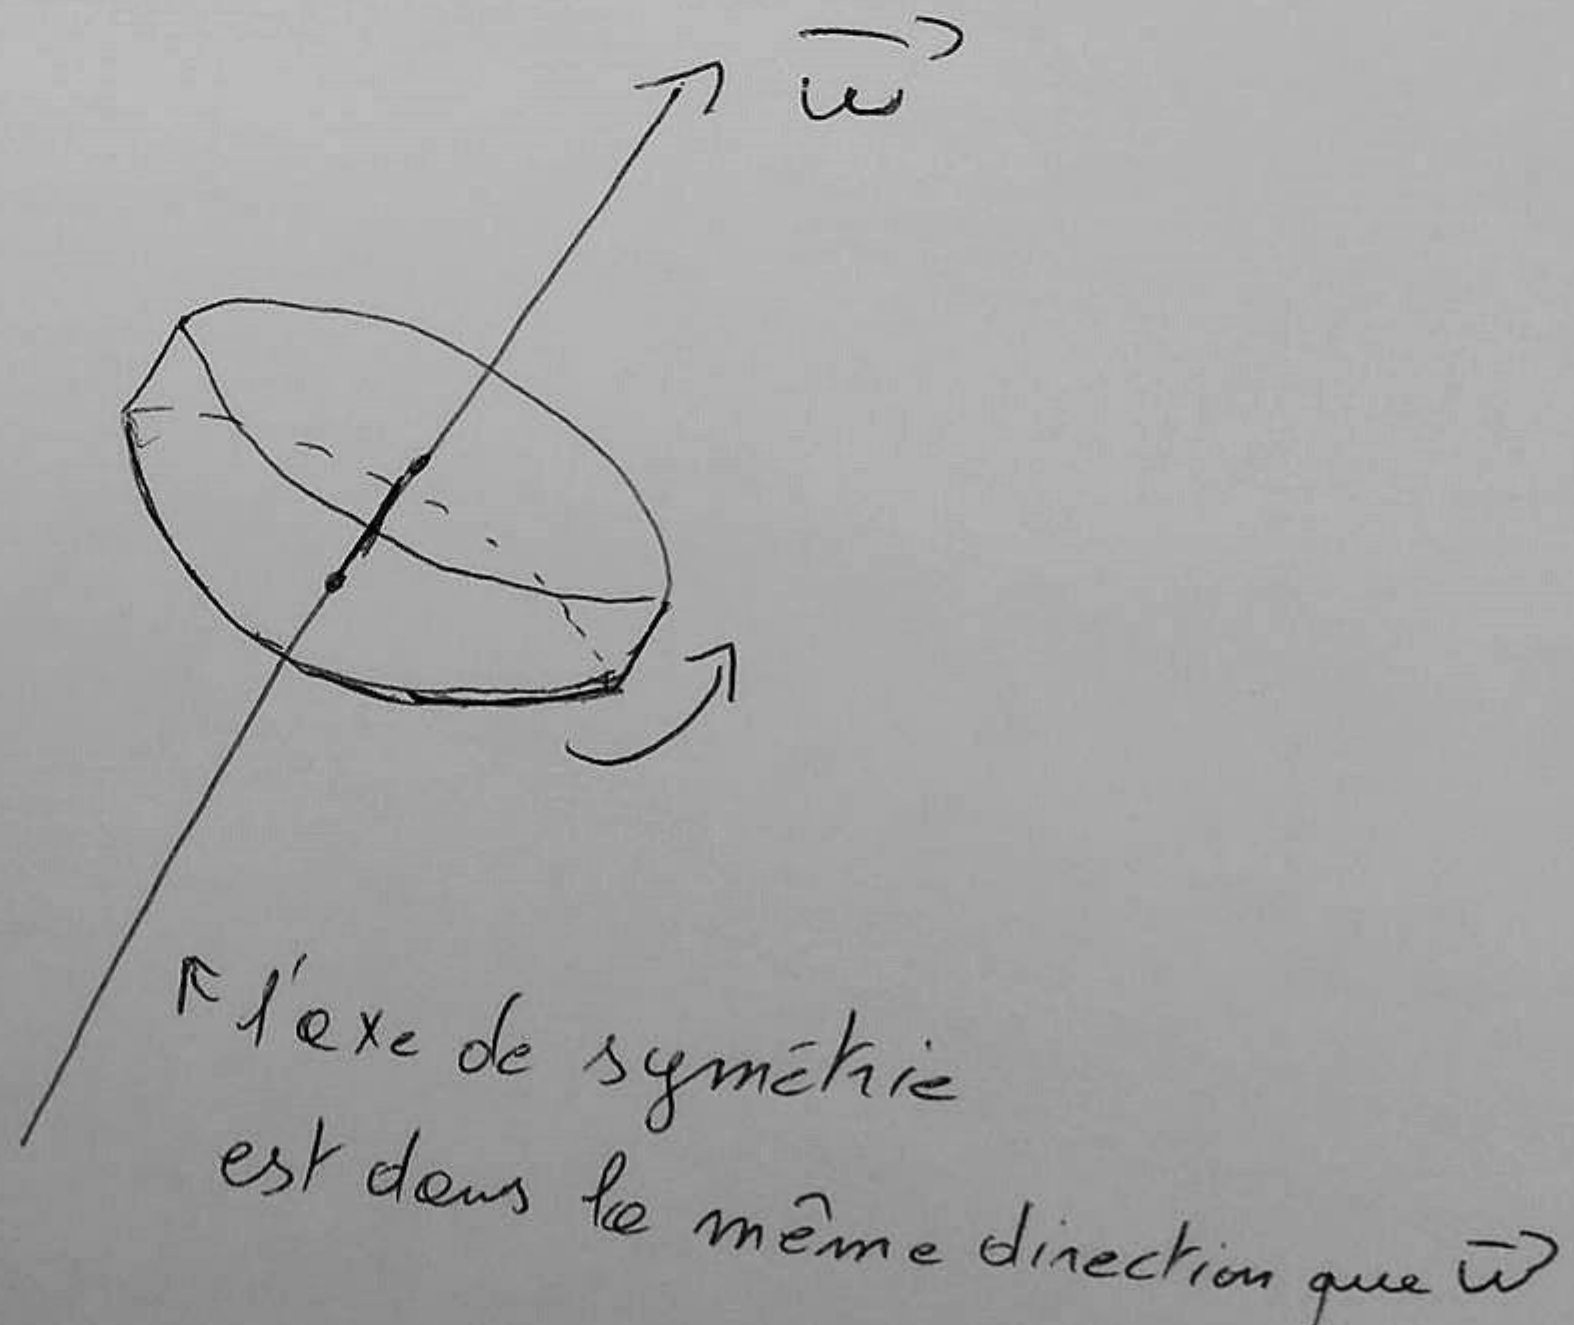 w⃗
l'axe de symétrie
est dans la même direction que w⃗